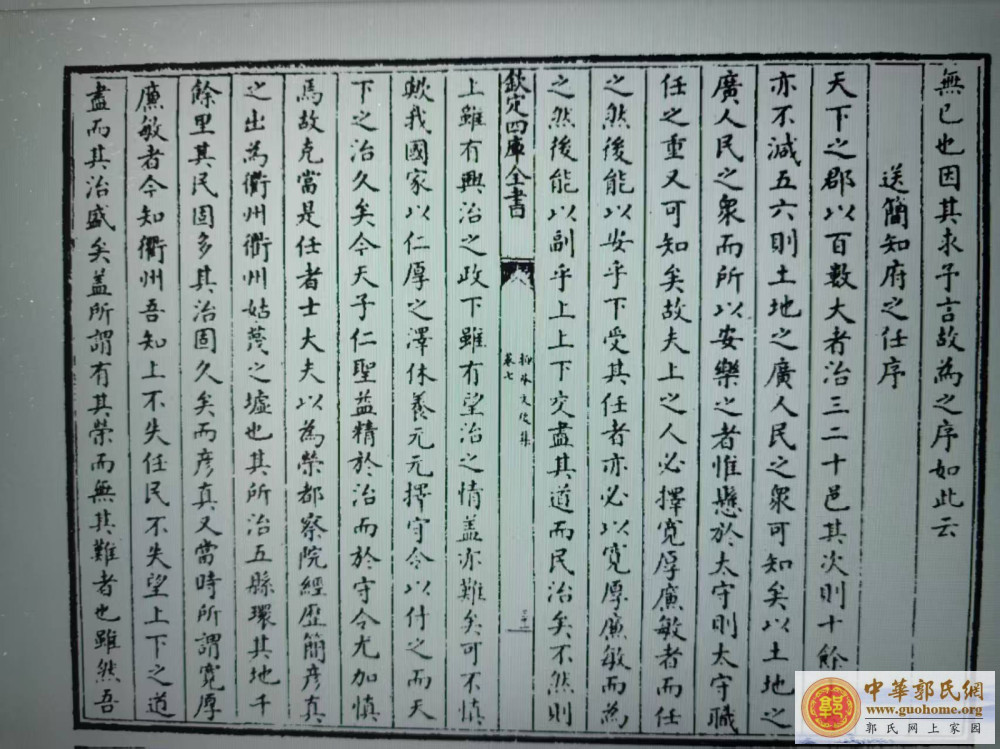 無已也因其求予言故為之序如此云
送簡知府之任序
天下之郡以百數大者治三二十邑其次則十餘
亦不減五六則土地之廣人民之衆可知矣以土地之
廣人民之衆而所以安樂之者惟懸於太守則太守職
任之重又可知矣故夫上之人必擇寛厚廉敏者而任
之然後能以安乎下受其任者亦必以寛厚廉敏而為
之然後能以副乎上上下交盡其道而民治矣不然則
欽定四庫全書
卷七
上雖有興治之政下雖有望治之情盖亦難矣可不慎
歟我國家以仁厚之澤休養元元擇守令以付之而天
下之治久矣今天子仁聖益精於治而於守令尤加慎
焉故克當是任者士大夫以為榮都察院經歴簡彦真
之出為衢州衢州姑蔑之墟也其所治五縣環其地千
餘里其民固多其治固久矣而彦真又當時所謂寛厚
廉敏者今知衢州吾知上不失任民不失望上下之道
盡而其治盛矣盖所謂有其榮而無其難者也雖然吾
中華郭氏網
www.guohome.org
郭氏网上家园